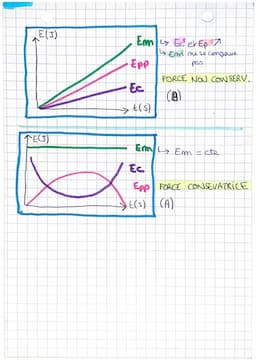 E(J)
Em ↳ Ec et Epp ↗
Epp ↳ Em ne se conserve pas
FORCE NON CONSERV.
Ec (B)
t(s)
E(J)
Em ↳ Em = cte
Ec
Epp FORCE CONSEVATRICE
t(s) (A)